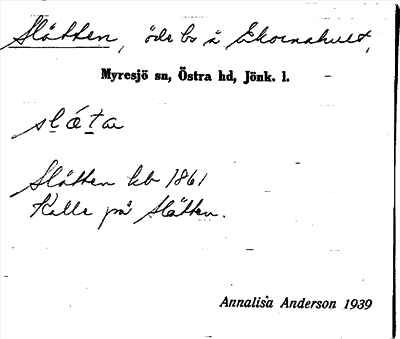 Slätten, öde bs å Ekornahult,
Myresjö sn, Östra hd, Jönk. l.
slǽta
Slätten kb 1861
Kalle på Slätten.
Annalisa Anderson 1939